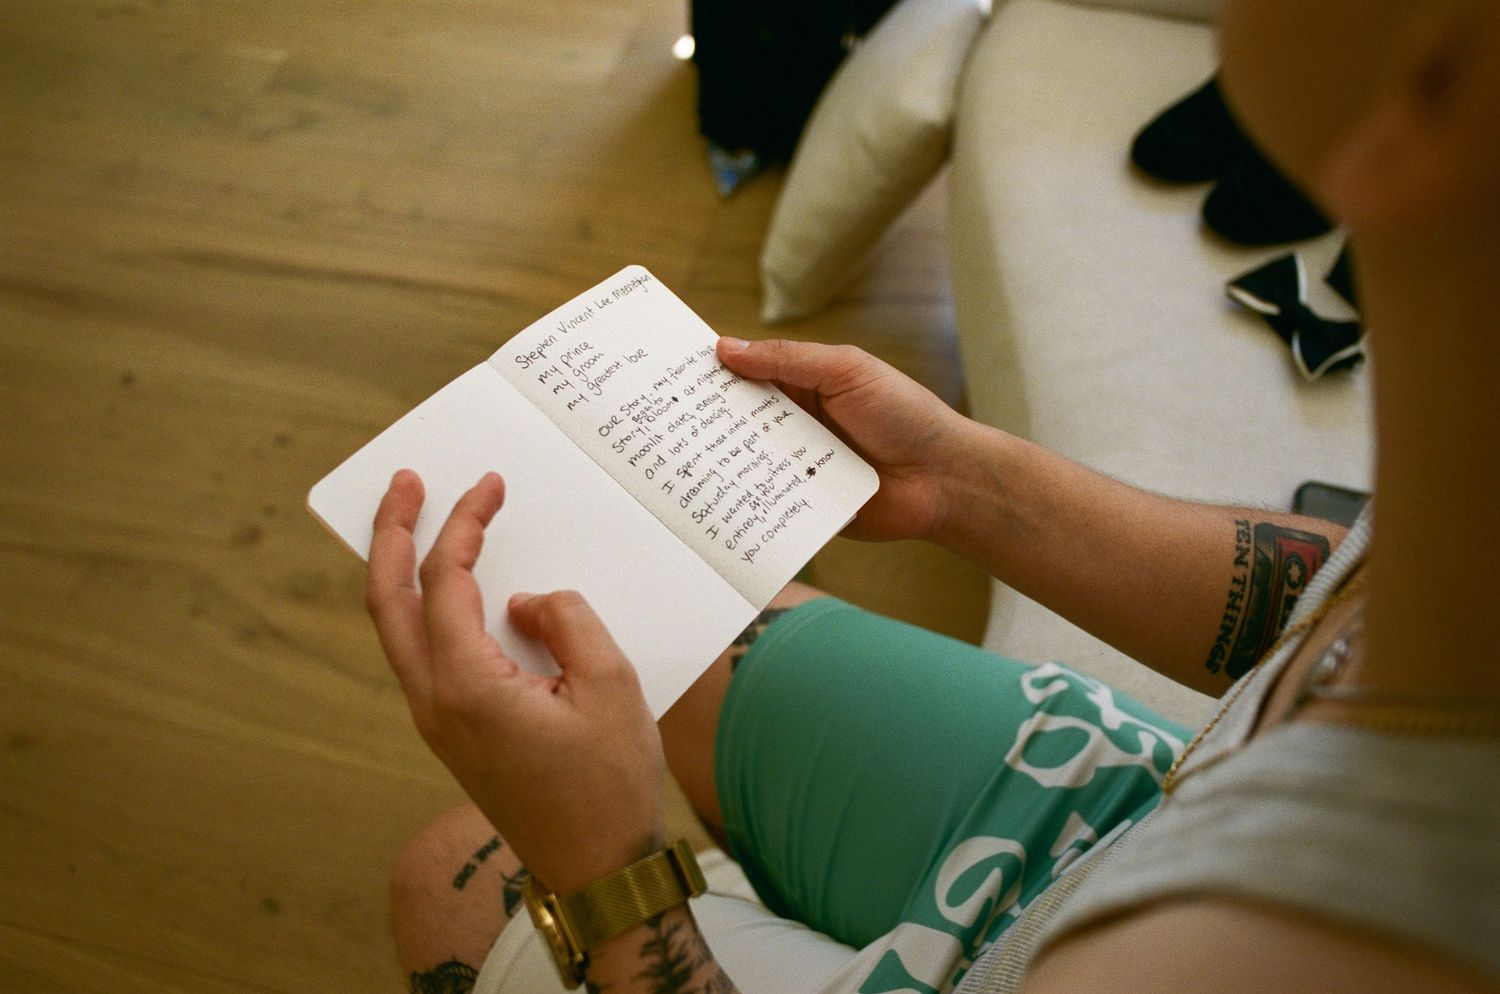 Stephen Vincent Lee
my prince
my groom
my greatest love
OUR Story: my favorite love
Story, began to bloom at nighttime
moonlit dates, evening strolls
and lots of dancing.
I spent those initial months
dreaming to be part of your
Saturday mornings.
I wanted to witness you
see you
entirely, illuminated, know
you completely.
TEN THINGS